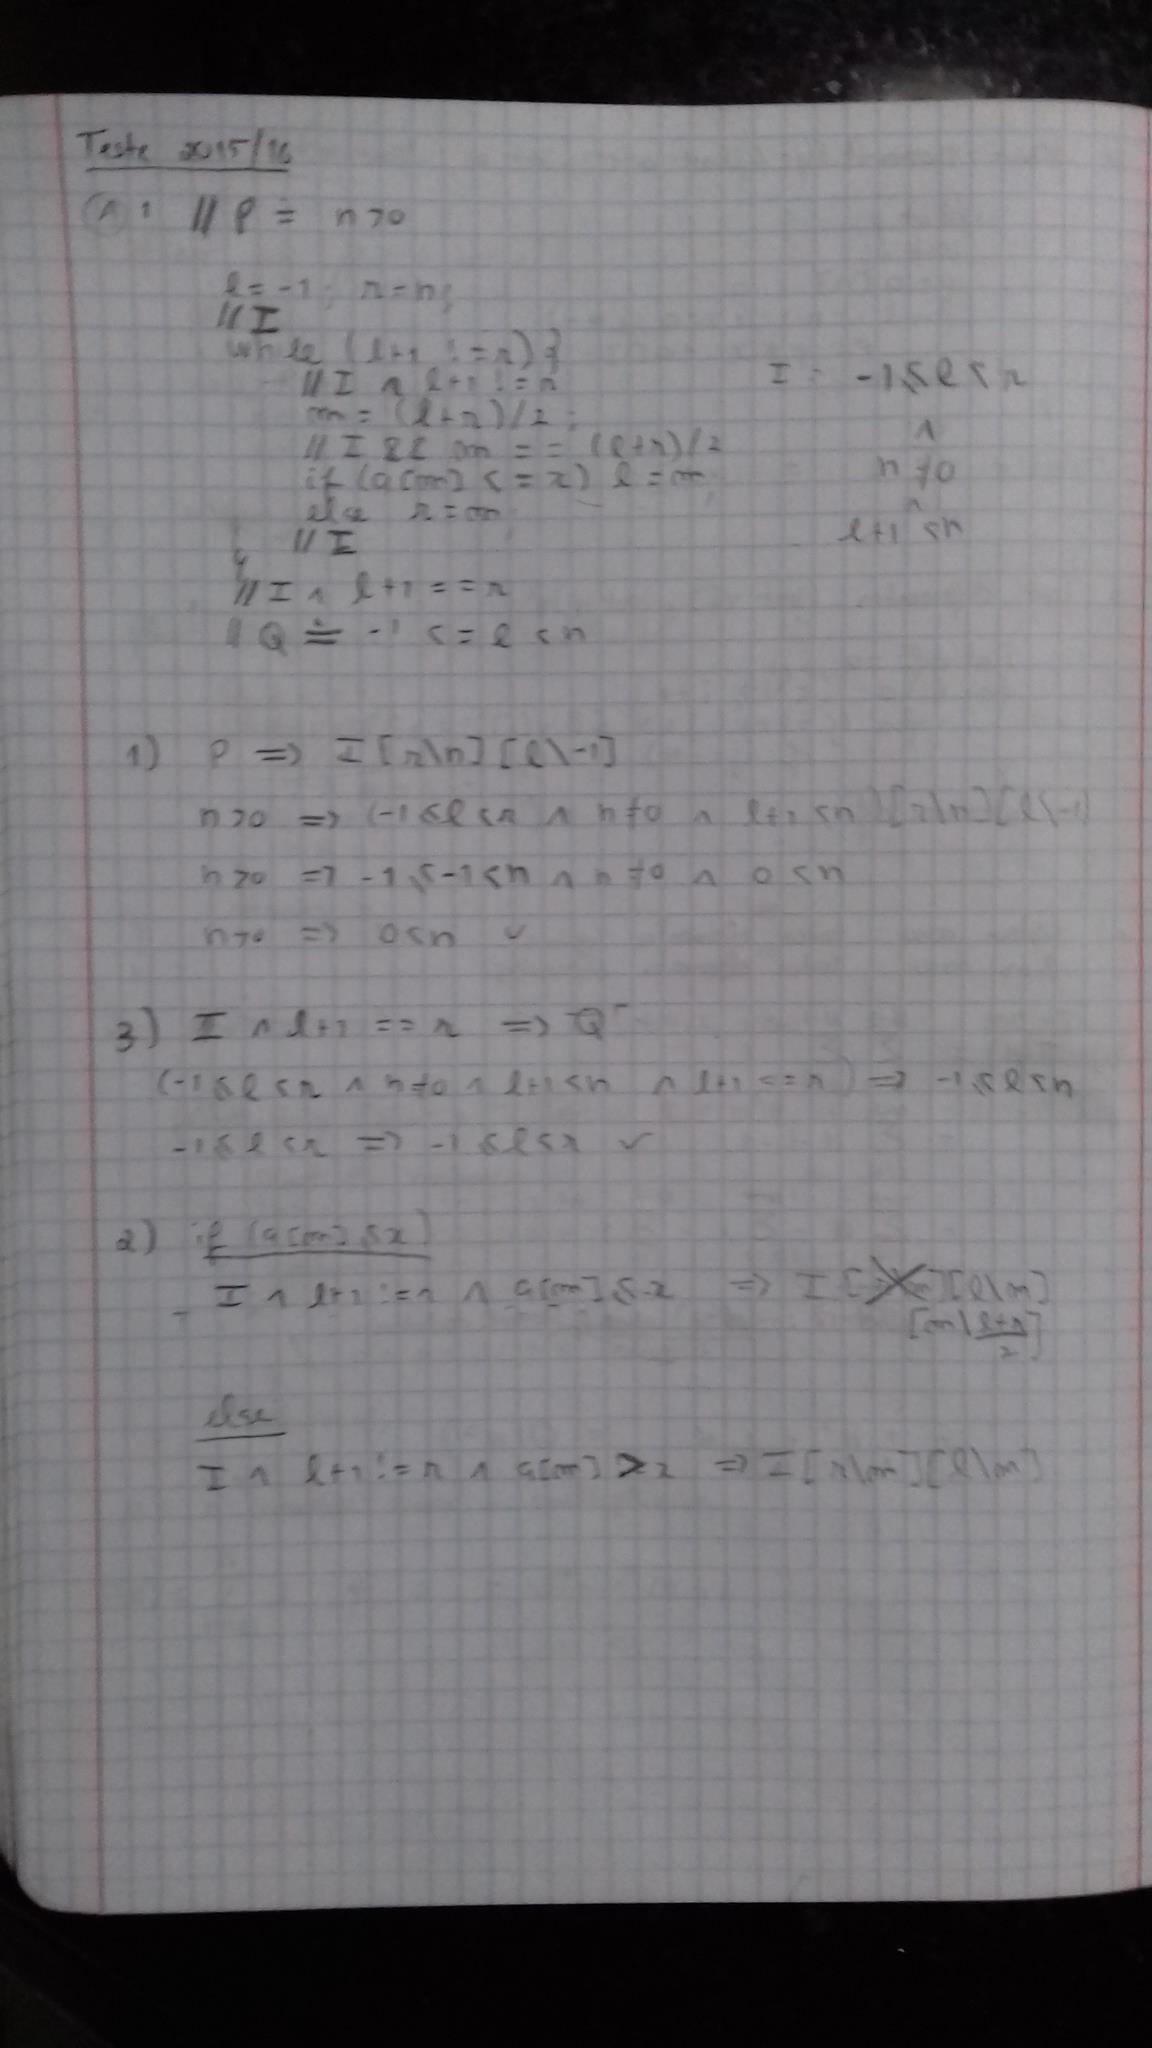 Teste 2015/16
1: // P ≐ n>0
l=-1; r=n;
// I
while (l+1 != r) {
// I ∧ l+1 != r
m = (l+r)/2;
// I && m == (l+r)/2
if (a[m] <= x) l=m
else r=m
// I
}
// I ∧ l+1 == r
// Q ≐ -1 <= l < n
I: -1 ≤ l < r
∧
n ≠ 0
∧
l+1 ≤ n
1) P => I [r\n] [l\-1]
n>0 => (-1 ≤ l < r ∧ n≠0 ∧ l+1 ≤ n) [r\n] [l\-1]
n>0 => -1 ≤ -1 < n ∧ n≠0 ∧ 0 ≤ n
n>0 => 0 ≤ n ✓
3) I ∧ l+1 == r => Q
(-1 ≤ l < r ∧ n≠0 ∧ l+1 ≤ n ∧ l+1 == r) => -1 ≤ l < n
-1 ≤ l < r => -1 ≤ l < r ✓
2) if (a[m] ≤ x)
I ∧ l+1 != r ∧ a[m] ≤ x => I [l\m]
[m\ l+r/2]
else
I ∧ l+1 != r ∧ a[m] > x => I [r\m] [l\m]